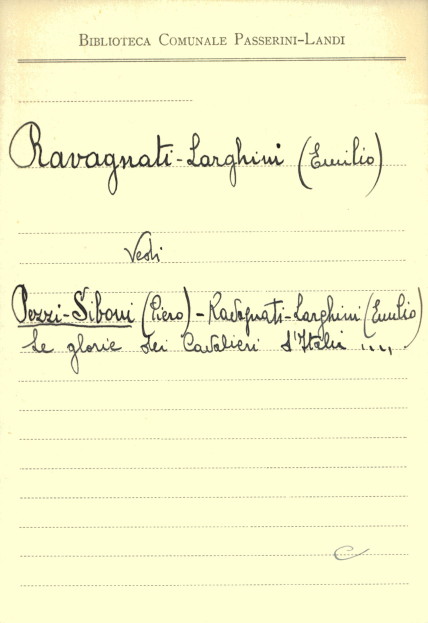 BIBLIOTECA COMUNALE PASSERINI-LANDI
Ravagnati-Larghini (Emilio)
Vedi
Pezzi-Siboni (Piero) - Ravagnati-Larghini (Emilio)
Le glorie dei Cavalieri d'Italia ....
C